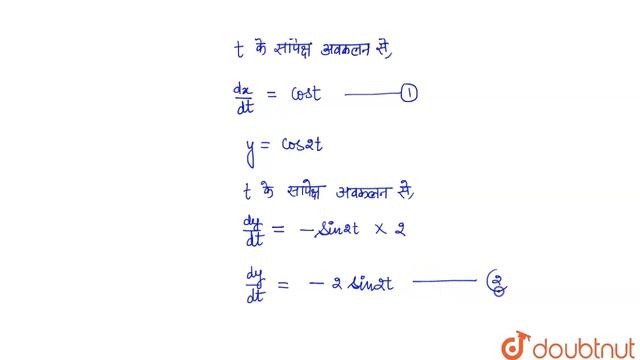 t के सापेक्ष अवकलन से,
dx/dt = cost ——— ①
y = cos2t
t के सापेक्ष अवकलन से,
dy/dt = - sin2t × 2
dy/dt = - 2 sin2t ——— ②
doubtnut